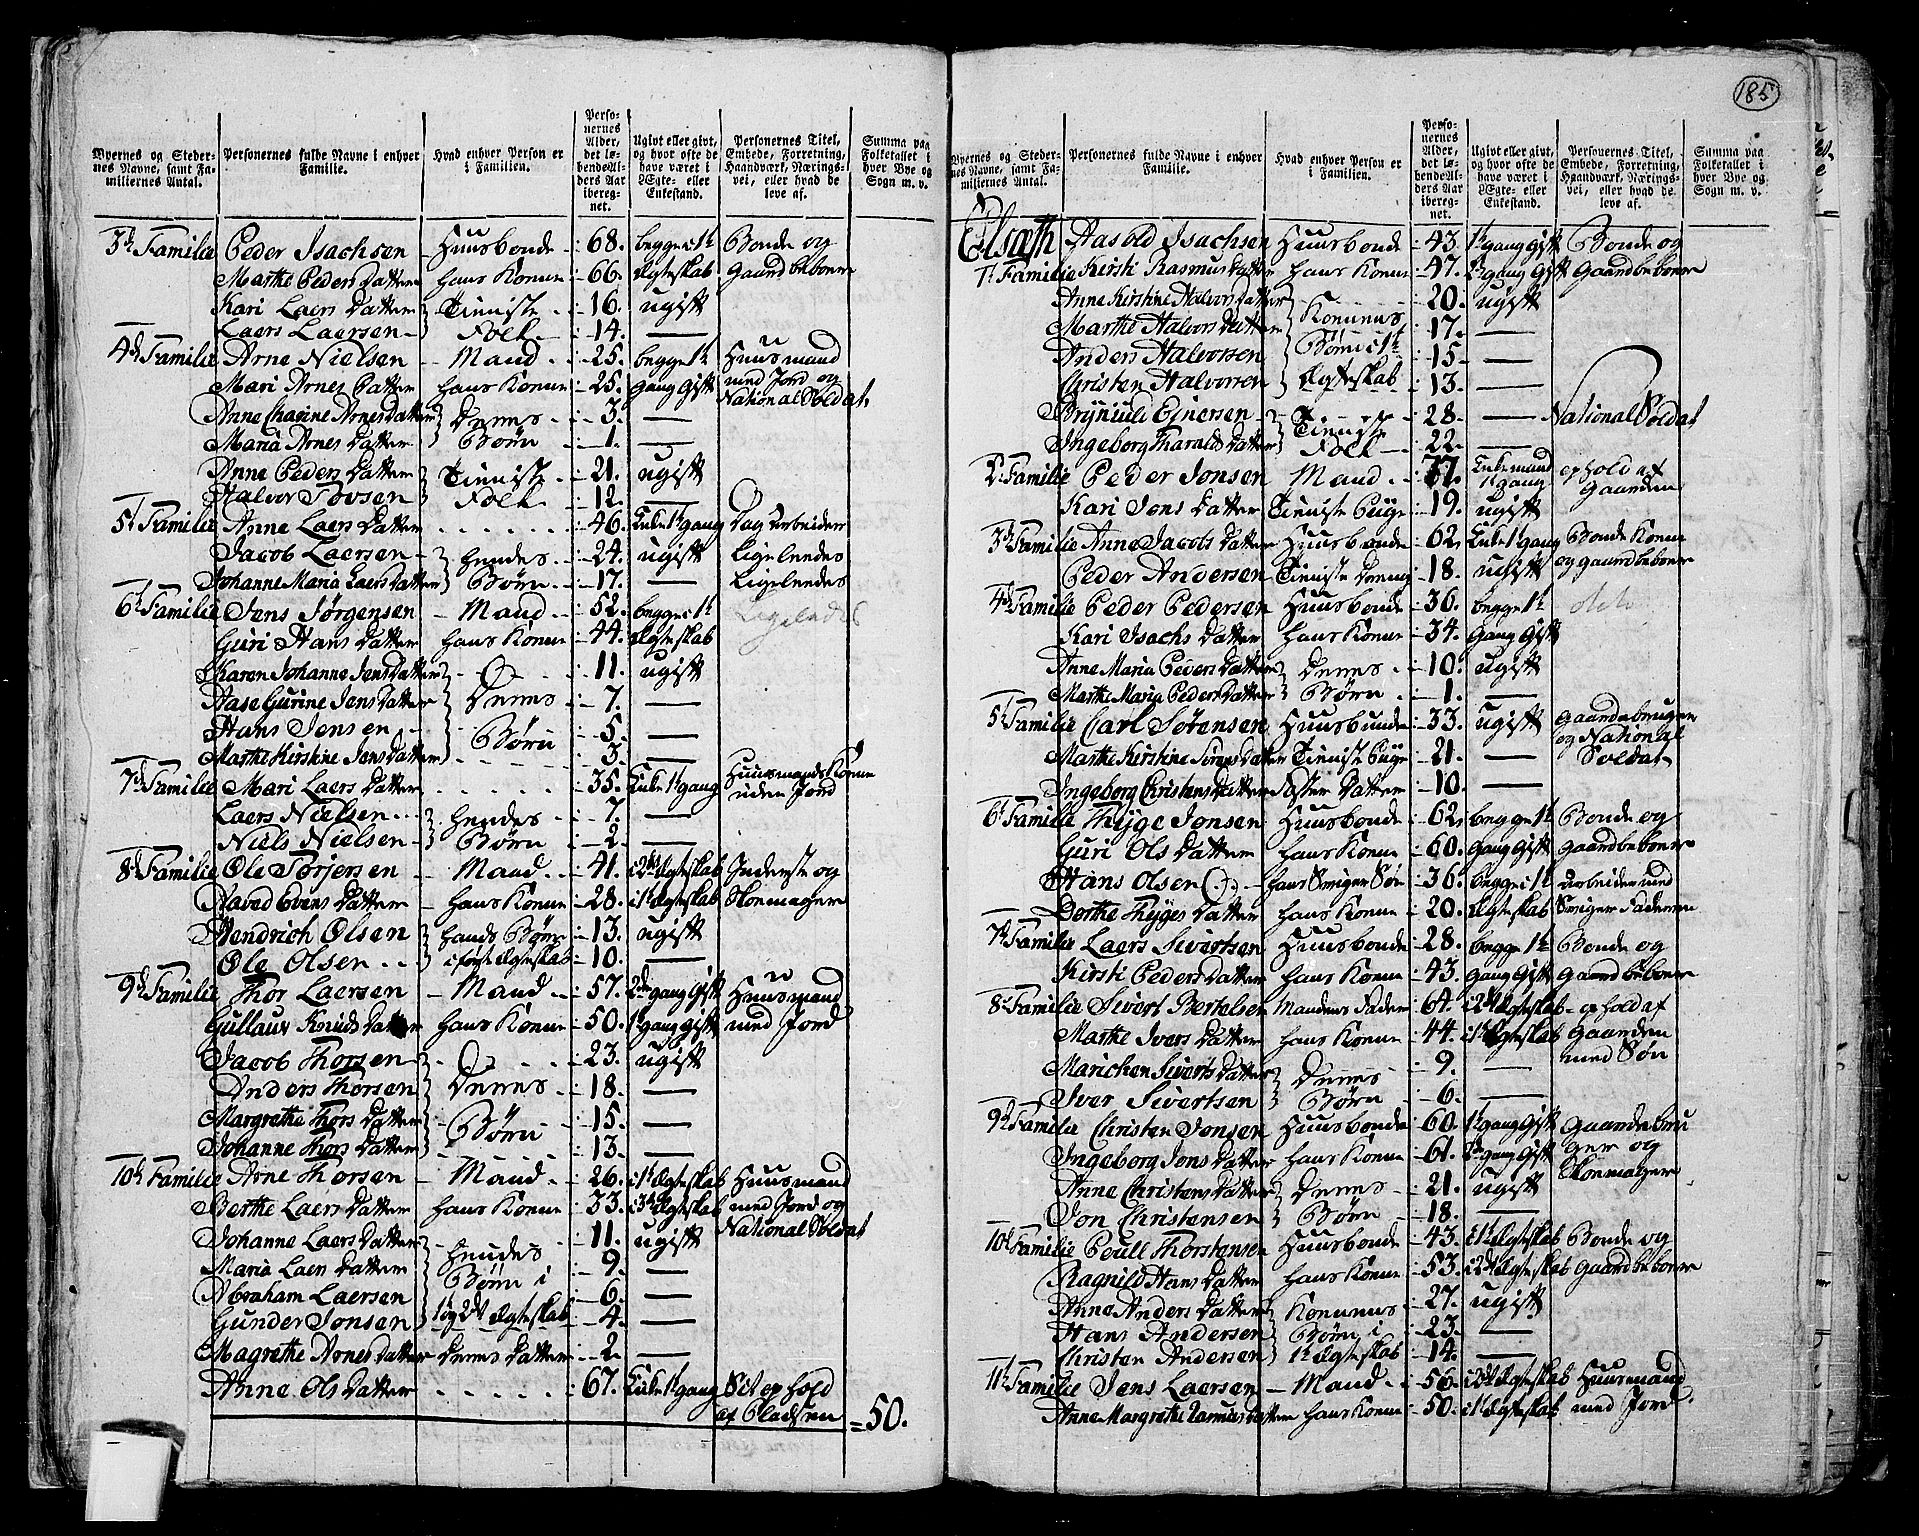 185
Byernes og Stedernes Navne, samt Familiernes Antal.
Personernes fulde Navne i enhver Familie.
Hvad enhver Person er i Familien.
Personernes Alder, det løbende Alders Aar iberegnet.
Ugivt eller givt, og hvor ofte de have været i Ægte- eller Enkestand.
Personernes Titel, Embede, Forretning, Haandværk, Næringsvei, eller hvad de leve af.
Summa paa Folketallet i hver Bye og Sogn m. v.
3d Familie Peder Isachsen Huusbonde 68. begge i 1t Bonde og
Marthe Peders Datter hans Konne 66. Ægteskab Gaardbeboere
Kari Laers Datter } Tieniste 16. ugift
Laers Laersen } Folk 14. —
4d Familie Arne Nielsen Mand 25. begge 1t Huusmand
Mari Arnes Datter hans Konne 25. gang Gift med Jord og
Anne Charine Arnes Datter } Deres 3. — National Soldat
Maria Arnes Datter } Børn 1. —
Anne Peders Datter } Tieniste 21. ugift
Halvor Tovsen } Folk 12. —
5t Familie Anne Laers Datter 46. Enke 1t gang Dag Arbeider
Jacob Laersen } hendes 24. ugift Ligeleedes
Johanne Maria Laers Datter } Børn 17. — Ligeleedes
6t Familie Jens Jørgensen Mand 52. begge i 1t Ligeledes
Guri Hans Datter hans Konne 44. Ægteskab
Karen Johanne Jens Datter } 11. ugift
Aase Gurine Jens Datter } Deres 7. —
Hans Jensen } Børn 5. —
Marthe Kirstine Jens Datter } 3. —
7d Familie Mari Laers Datter 35. Enke 1t gang Huusmands Konne
Laers Nielsen } hendes 7. — uden Jord
Niels Nielsen } Børn 2. —
8d Familie Ole Torjersen Mand 41. i 2det Ægteskab Inderste og
Naved Evens Datter hans Konne 28. i 1t Ægteskab Skomager
Hendrich Olsen } hands Børn 13. ugift
Ole Olsen } i først Ægteskab 10. —
9d Familie Thor Laersen Mand 57. 2den gang Gift Huusmand
Gullaug Knuds Datter hans Konne 50. 1t gang Gift med Jord
Jacob Thorsen } 23. ugift
Anders Thorsen } Deres 18. —
Margrethe Thors Datter } Børn 15. —
Johanne Thors Datter } 13. —
10d Familie Arne Thorsen Mand 26. i 1t Ægteskab Huusmand
Berthe Laers Datter hans Konne 33. i 3d Ægteskab med Jord og
Johanne Laers Datter } 11. ugift National Soldat
Maria Laers Datter } hendes 9. —
Abraham Laersen } Børn i 6. —
Gunder Jonsen } 1 og 2det Ægteskab 4. —
Magrethe Arnes Datter Deres Datter 2. —
Anne Ols Datter 67. Enke 1t gang Sit ophold
af Pladsen = 50.
Byernes og Stedernes Navne, samt Familiernes Antal.
Personernes fulde Navne i enhver Familie.
Hvad enhver Person er i Familien.
Personernes Alder, det løbende Alders Aar iberegnet.
Ugivt eller givt, og hvor ofte de have været i Ægte- eller Enkestand.
Personernes Titel, Embede, Forretning, Haandværk, Næringsvei, eller hvad de leve af.
Summa paa Folketallet i hver Bye og Sogn m. v.
Elsæth Aasold Isachsen Huusbonde 43. 1t gang Gift Bonde og
1t Familie Kirsti Rasmus Datter hans Konne 47. gang Gift Gaardbeboere
Anne Kirstine Halvors Datter } 20. ugift
Marthe Halvors Datter } Konnens 17. —
Anders Halvorsen } Børn i 1t 15. —
Christen Halvorsen } Ægteskab 13. —
Brynild Einersen } Tieniste 28. — National Soldat
Ingeborg Tharalds Datter } Folk 22. —
2d Familie Peder Jonsen Mand 77. Enkemand 1t gang ophold af Gaarden
Kari Jens Datter Tieniste Piige 19. ugift
3d Familie Anne Jacobs Datter Huusbonde 62. Enke 1t gang Bonde Konne
Peder Andersen Tieniste Dreng 18. ugift og Gaardbeboere
4d Familie Peder Pedersen Huusbonde 36. begge 1t
Kari Isachs Datter hans Konne 34. gang Gift
Anne Maria Peders Datter } Deres 10. ugift
Marthe Maria Peders Datter } Børn 1. —
5t Familie Carl Sørensen Huusbunde 33. ugift Gaardebruger
Marthe Kirstine Sørens Datter Tieniste Piige 21. — og National
Ingeborg Christens Datter Søster Datter 10. — Soldat
6t Familie Thyge Jonsen Huusbonde 62. begge 1t Bonde og
Guri Ols Datter hans Konne 60. gang Gift Gaardbeboere
Hans Olsen hans Sviger Søn 36. begge i 1t Arbeider med
Dorthe Thyges Datter hans Konne 20. Ægteskab Sviger Faderen
7d Familie Laers Sivertsen Huusbonde 28. begge 1t Bonde og
Kirsti Peders Datter hans Konne 43. gang Gift Gaardbeboere
8d Familie Sivert Bertelsen Mandens Fader 64. i 2det Ægteskab ophold af
Marthe Ivers Datter hans Konne 44. i 1t Ægteskab Gaarden
Marichen Siverts Datter } Deres 9. — med Søn
Iver Sivertsen } Børn 6. —
9d Familie Christen Jonsen Huusbonde 60. 1t gang Gift Gaardebru
Ingeborg Jons Datter hans Konne 61. gang Gift ger og
Anne Christens Datter } Deres 21. ugift Skomager
Jon Christensen } Børn 18. —
10d Familie Poull Thorstensen Huusbonde 43. i 1t Ægteskab Bonde og
Ragnild Hans Datter hans Konne 53. i 2det Ægteskab Gaardbeboere
Anne Anders Datter } Konnens 27. ugift
Hans Andersen } Børn i 23. —
Christen Andersen } 1t Ægteskab 14. —
11t Familie Jens Laersen Mand 56. i 2det Ægteskab Huusmand
Anne Margrethe Rasmus Datter hans Konne 50. i 1t Ægteskab med Jord.